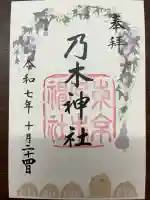 奉拝
乃木神社
令和七年十月二十四日